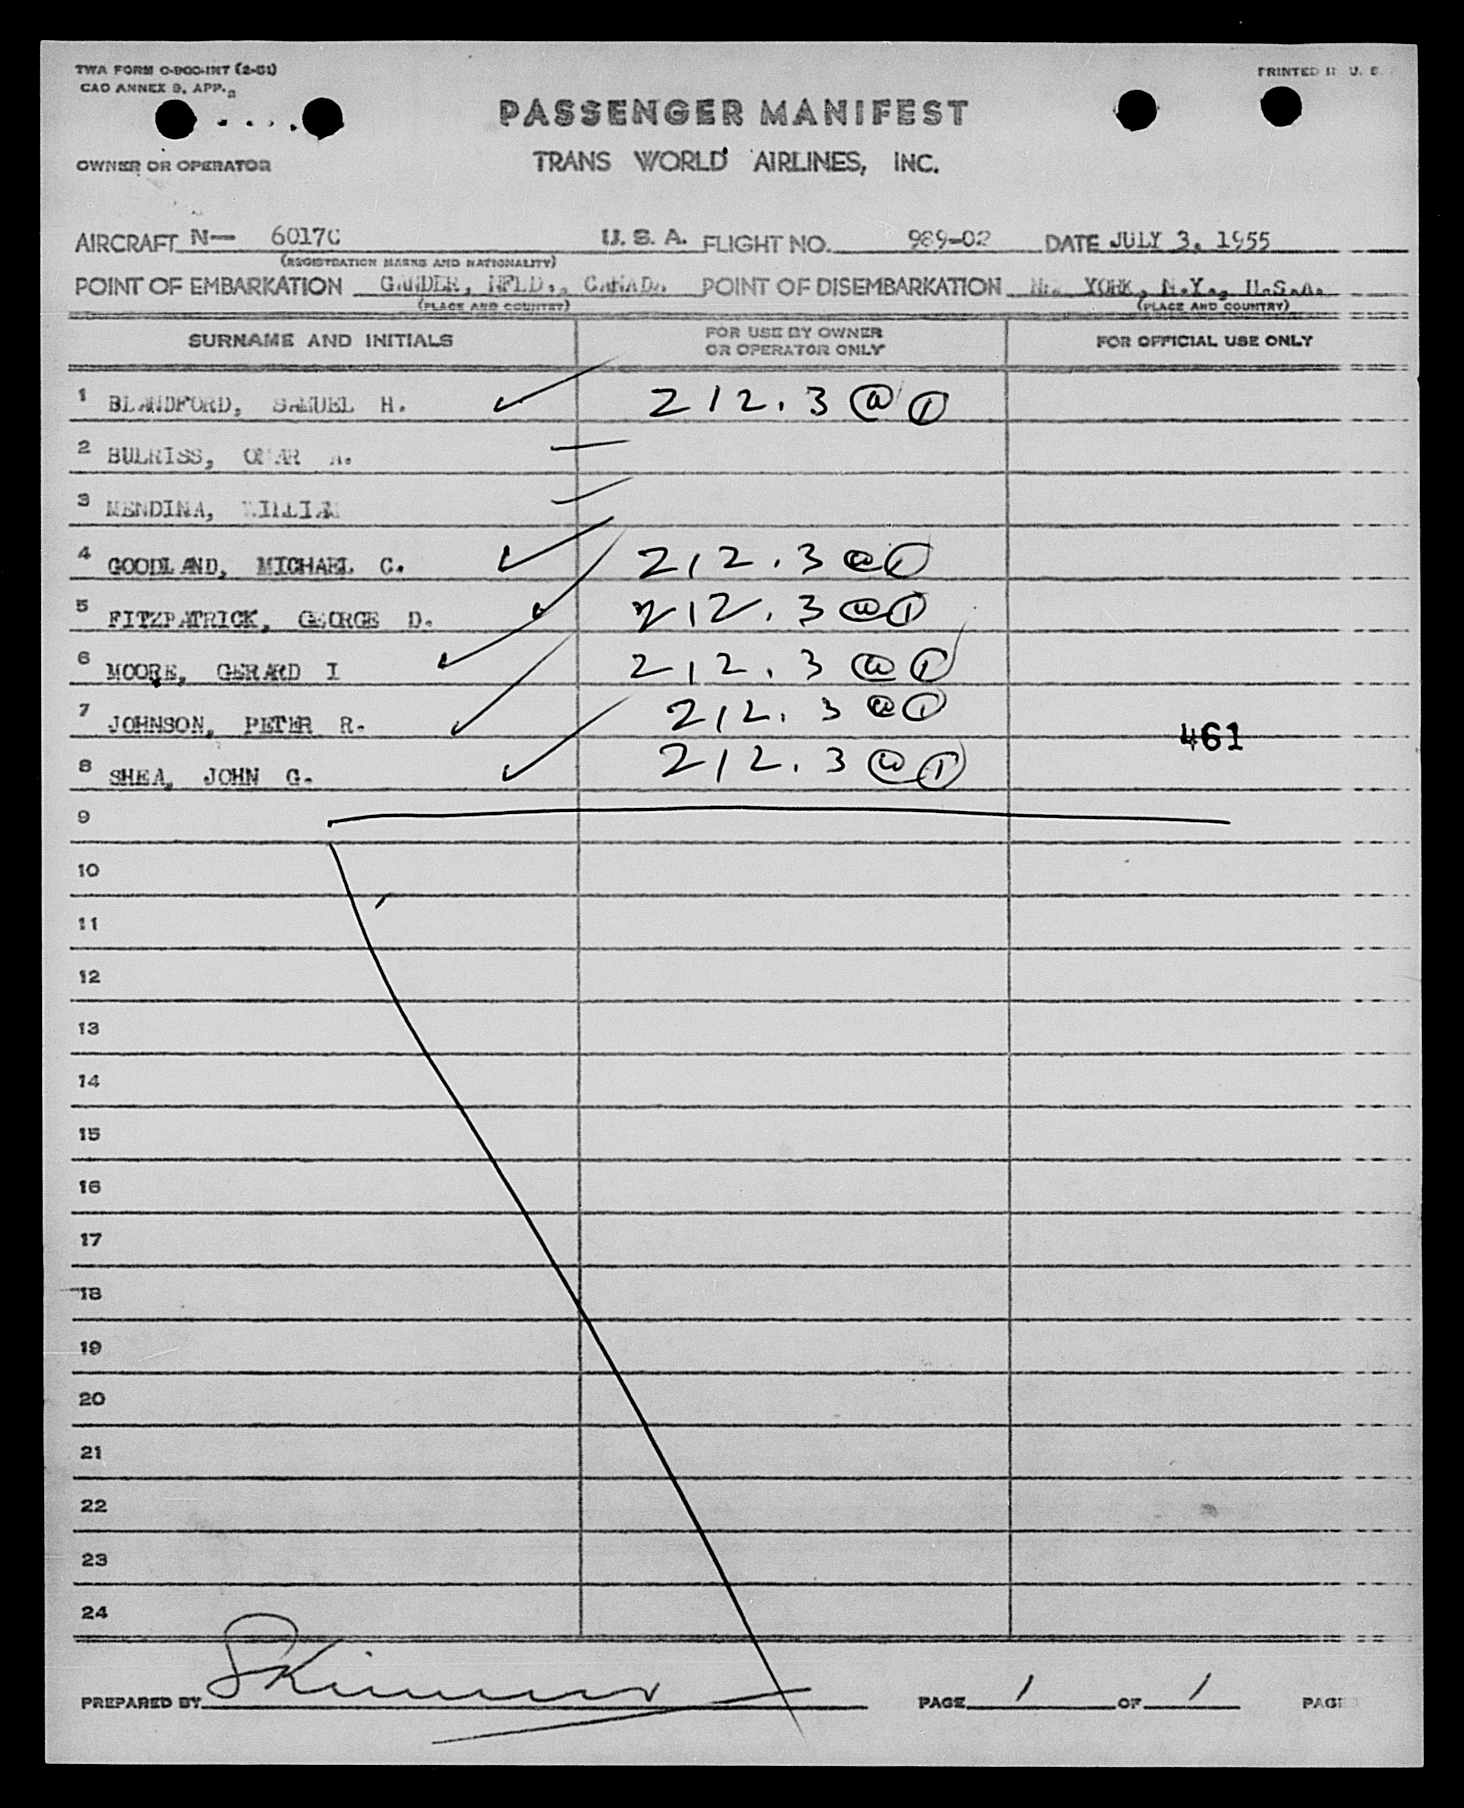 TWA FORM O-900-INT (2-51)
PRINTED IN U. S.
CAO ANNEX 9, APP.
PASSENGER MANIFEST
OWNER OR OPERATOR
TRANS WORLD AIRLINES, INC.
AIRCRAFT N— 6017C U. S. A. FLIGHT NO. 989-02 DATE JULY 3, 1955
(REGISTRATION MARKS AND NATIONALITY)
POINT OF EMBARKATION GANDER, NFLD., CANADA POINT OF DISEMBARKATION NEW YORK, N.Y., U.S.A.
(PLACE AND COUNTRY) (PLACE AND COUNTRY)
SURNAME AND INITIALS FOR USE BY OWNER OR OPERATOR ONLY FOR OFFICIAL USE ONLY
1 BLANDFORD, SAMUEL H. 212.3
2 BULRISS, OMAR A.
3 MENDINA, WILLIAM
4 GOODLAND, MICHAEL C. 212.3
5 FITZPATRICK, GEORGE D. 212.3
6 MOORE, GERARD I 212.3
7 JOHNSON, PETER R. 212.3
461
8 SHEA, JOHN G. 212.3
9
10
11
12
13
14
15
16
17
18
19
20
21
22
23
24
PREPARED BY Skinner PAGE 1 OF 1 PAGE